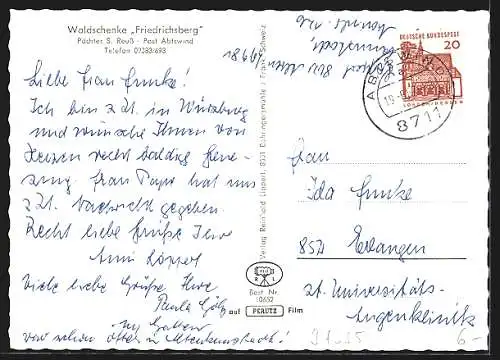 Waldschenke „Friedrichsberg"
Pächter S. Reuß - Post Abtswind
Telefon 09383/693
Liebe Frau Funke!
Ich bin z. Zt. in Würzburg
und wünsche Ihnen von
Herzen recht baldige Gene-
sung. Frau Papp hat uns
z. Zt. Nachricht gegeben.
Recht liebe Grüße Ihre
Anni
Viele liebe Grüße Ihre
Paula Götz
war schon öfter in Altenkunstadt!
Verlag Reinhard Lippert, 8531 Dühringenmühle / Frank. Schweiz
Best. Nr.
10652
auf PERUTZ Film
DEUTSCHE BUNDESPOST
20
LORSCH/HESSEN
ABTSWIND
8711
Frau
Ida Funke
852 Erlangen
z. Zt. Universitäts-
Augenklinik
6.-